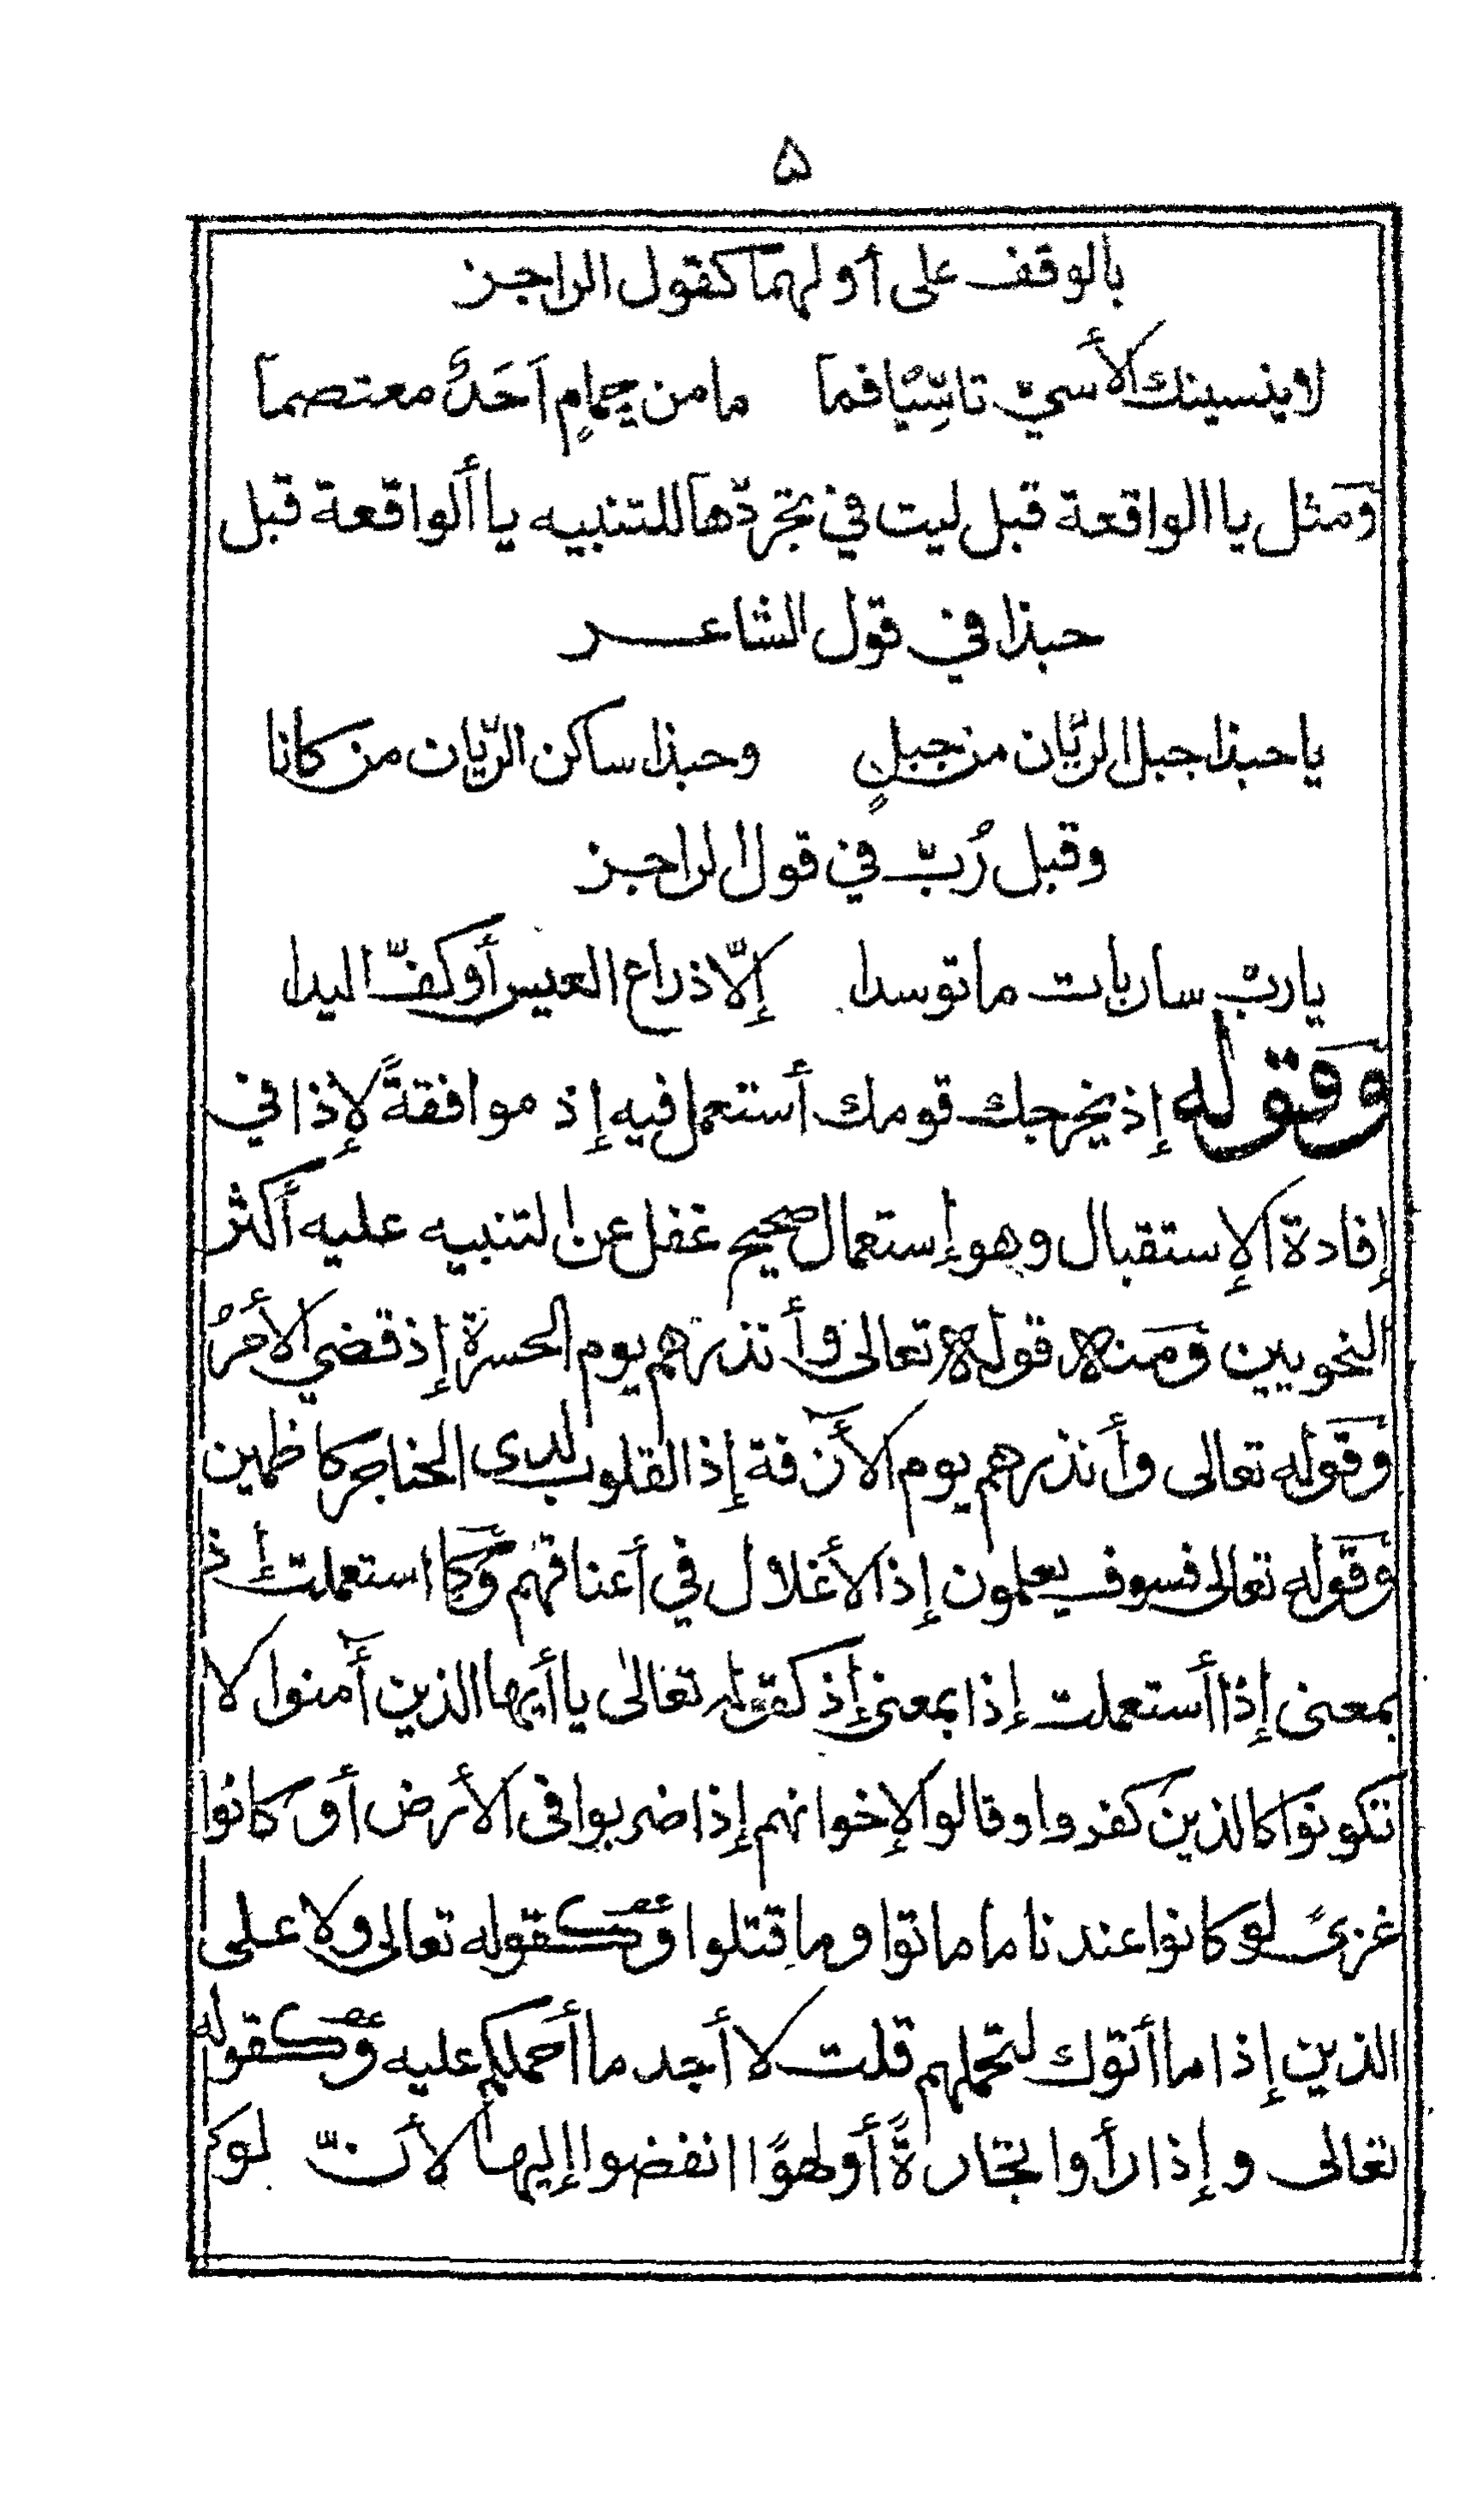 ۵
بالوقف على أولهما كقول الراجز
لا ينسينك الأسيّ تاسِّيًا فما ما من حِمامٍ اَحَدٌ معتصما
وَمثل يا الواقعة قبل ليت في تجردّها للتنبيه يا ألواقعة قبل
حبذا في قول الشاعر
يا حبذا جبل الريّان من جبلٍ وحبذا ساكن الريّان من كانا
وقبل رُبّ في قول الراجز
يا ربّ سار بات ما توسدا إلّا ذراع العيس أو كفّ اليدا
وَقوله إذ يخرجك قومك أستعمل فيه إذ موافقةً لإذا في
إفادة الإستقبال وهو إستعمال صحيح غفل عن التنبيه عليه أكثر
النحويين وَمنه قوله تعالى وأنذرهم يوم الحسرة إذ قضي الأمرُ
وَقوله تعالى وأنذرهم يوم الآزفة إذ القلوب لدى الحناجر كاظمين
وَقوله تعالى فسوف يعلمون إذ الأغلال في أعناقهم وَكما استعملت إذ
بمعنى إذا أستعملت إذا بمعنى إذ كقوله تعالى يا أيها الذين آمنوا لا
تكونوا كالذين كفروا وقالوا لإخوانهم إذا ضربوا في الأرض أو كانوا
غزىً لو كانوا عندنا ما ماتوا وما قتلوا وَكقوله تعالى ولا على
الذين إذا ما أتوك لتحملهم قلت لا أجد ما أحملكم عليه وَكقوله
تعالى وإذا رأوا تجارةً أو لهوًا انفضوا إليها لأنّ لو